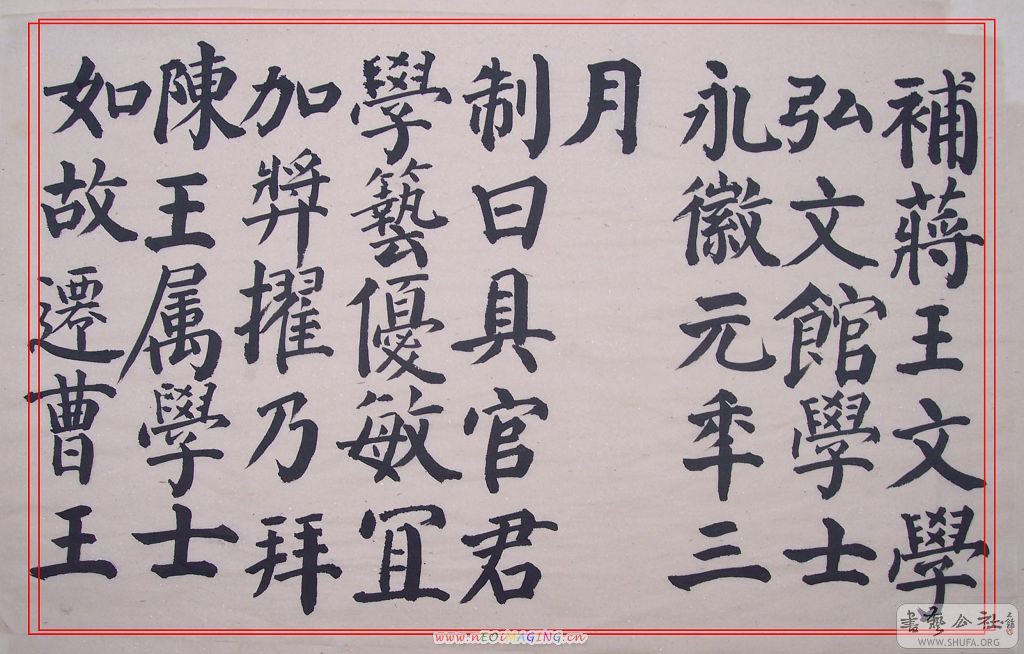 補蔣王文學
弘文館學士
永徽元年三
月
制曰具官君
學藝優敏宜
加奬擢乃拜
陳王属學士
如故遷曹王
書藝公社
WWW.SHUFA.ORG
www.nEOiMAGING.cn